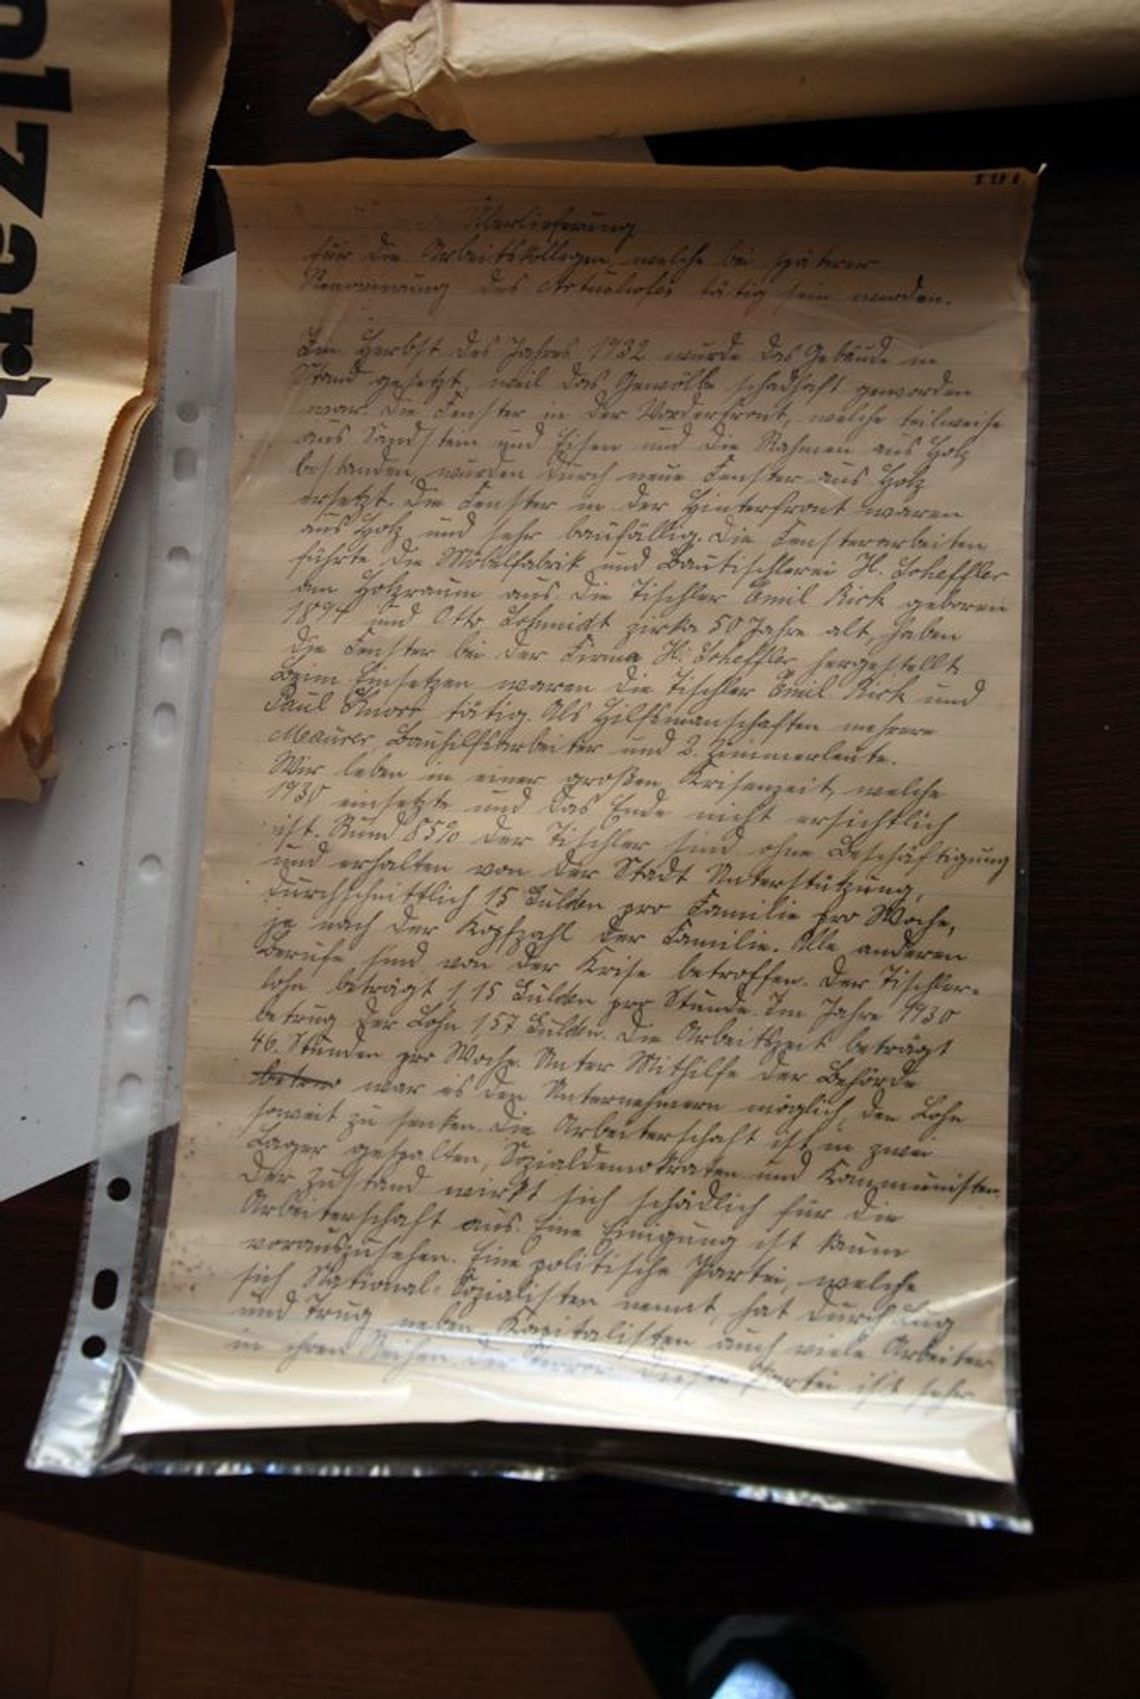 Überlieferung
für die Arbeitskollegen, welche bei späterer
Renovierung des Artushofes tätig sein werden.
Im Herbst des Jahres 1932 wurde das Gebäude in
Stand gesetzt, weil das Gewölbe schadhaft geworden
war. Die Fenster in der Vorderfront, welche teilweise
aus Sandstein und Eisen und die Rahmen aus Holz
bestanden, wurden durch neue Fenster aus Holz
ersetzt. Die Fenster in der Hinterfront waren
aus Holz und sehr baufällig. Die Fensterarbeiten
führte die Möbelfabrik und Bautischlerei H. Scheffler
am Holzraum aus. Die Tischler Emil Kirk geboren
und Otto Schmidt zirka 50 Jahre alt, haben
die Fenster bei der Firma H. Scheffler hergestellt
Beim Einsetzen waren die Tischler Emil Kirk und
Paul Knorr tätig. Als Hilfsmanschaften mehrere
Maurer, Bauhilfsarbeiter und 2. Zimmerleute.
Wir leben in einer großen Krisenzeit, welche
1930 einsetzte und das Ende nicht ersichtlich
ist. Rund 85% der Tischler sind ohne Beschäftigung
und erhalten von der Stadt Unterstützung,
durchschnittlich 15 Gulden pro Familie pro Woche,
je nach der Kopfzahl der Familie. Alle anderen
Berufe sind von der Krise betroffen. Der Tischler-
lohn beträgt 1,15 Gulden pro Stunde. Im Jahre 1930
betrug der Lohn 1,57 Gulden. Die Arbeitszeit beträgt
46. Stunden pro Woche. Unter Mithilfe der Behörde
war es den Unternehmern möglich, den Lohn
soweit zu senken. Die Arbeiterschaft ist in zwei
Lager gespalten, Sozialdemokraten und Kommunisten.
Der Zustand wirkt sich schädlich für die
Arbeiterschaft aus. Eine Einigung ist kaum
vorauszusehen. Eine politische Partei, welche
sich National-Sozialisten nennt, hat durch Lug
und Trug neben Kapitalisten auch viele Arbeiter
in ihren Reihen. Der Terror dieser Partei ist sehr